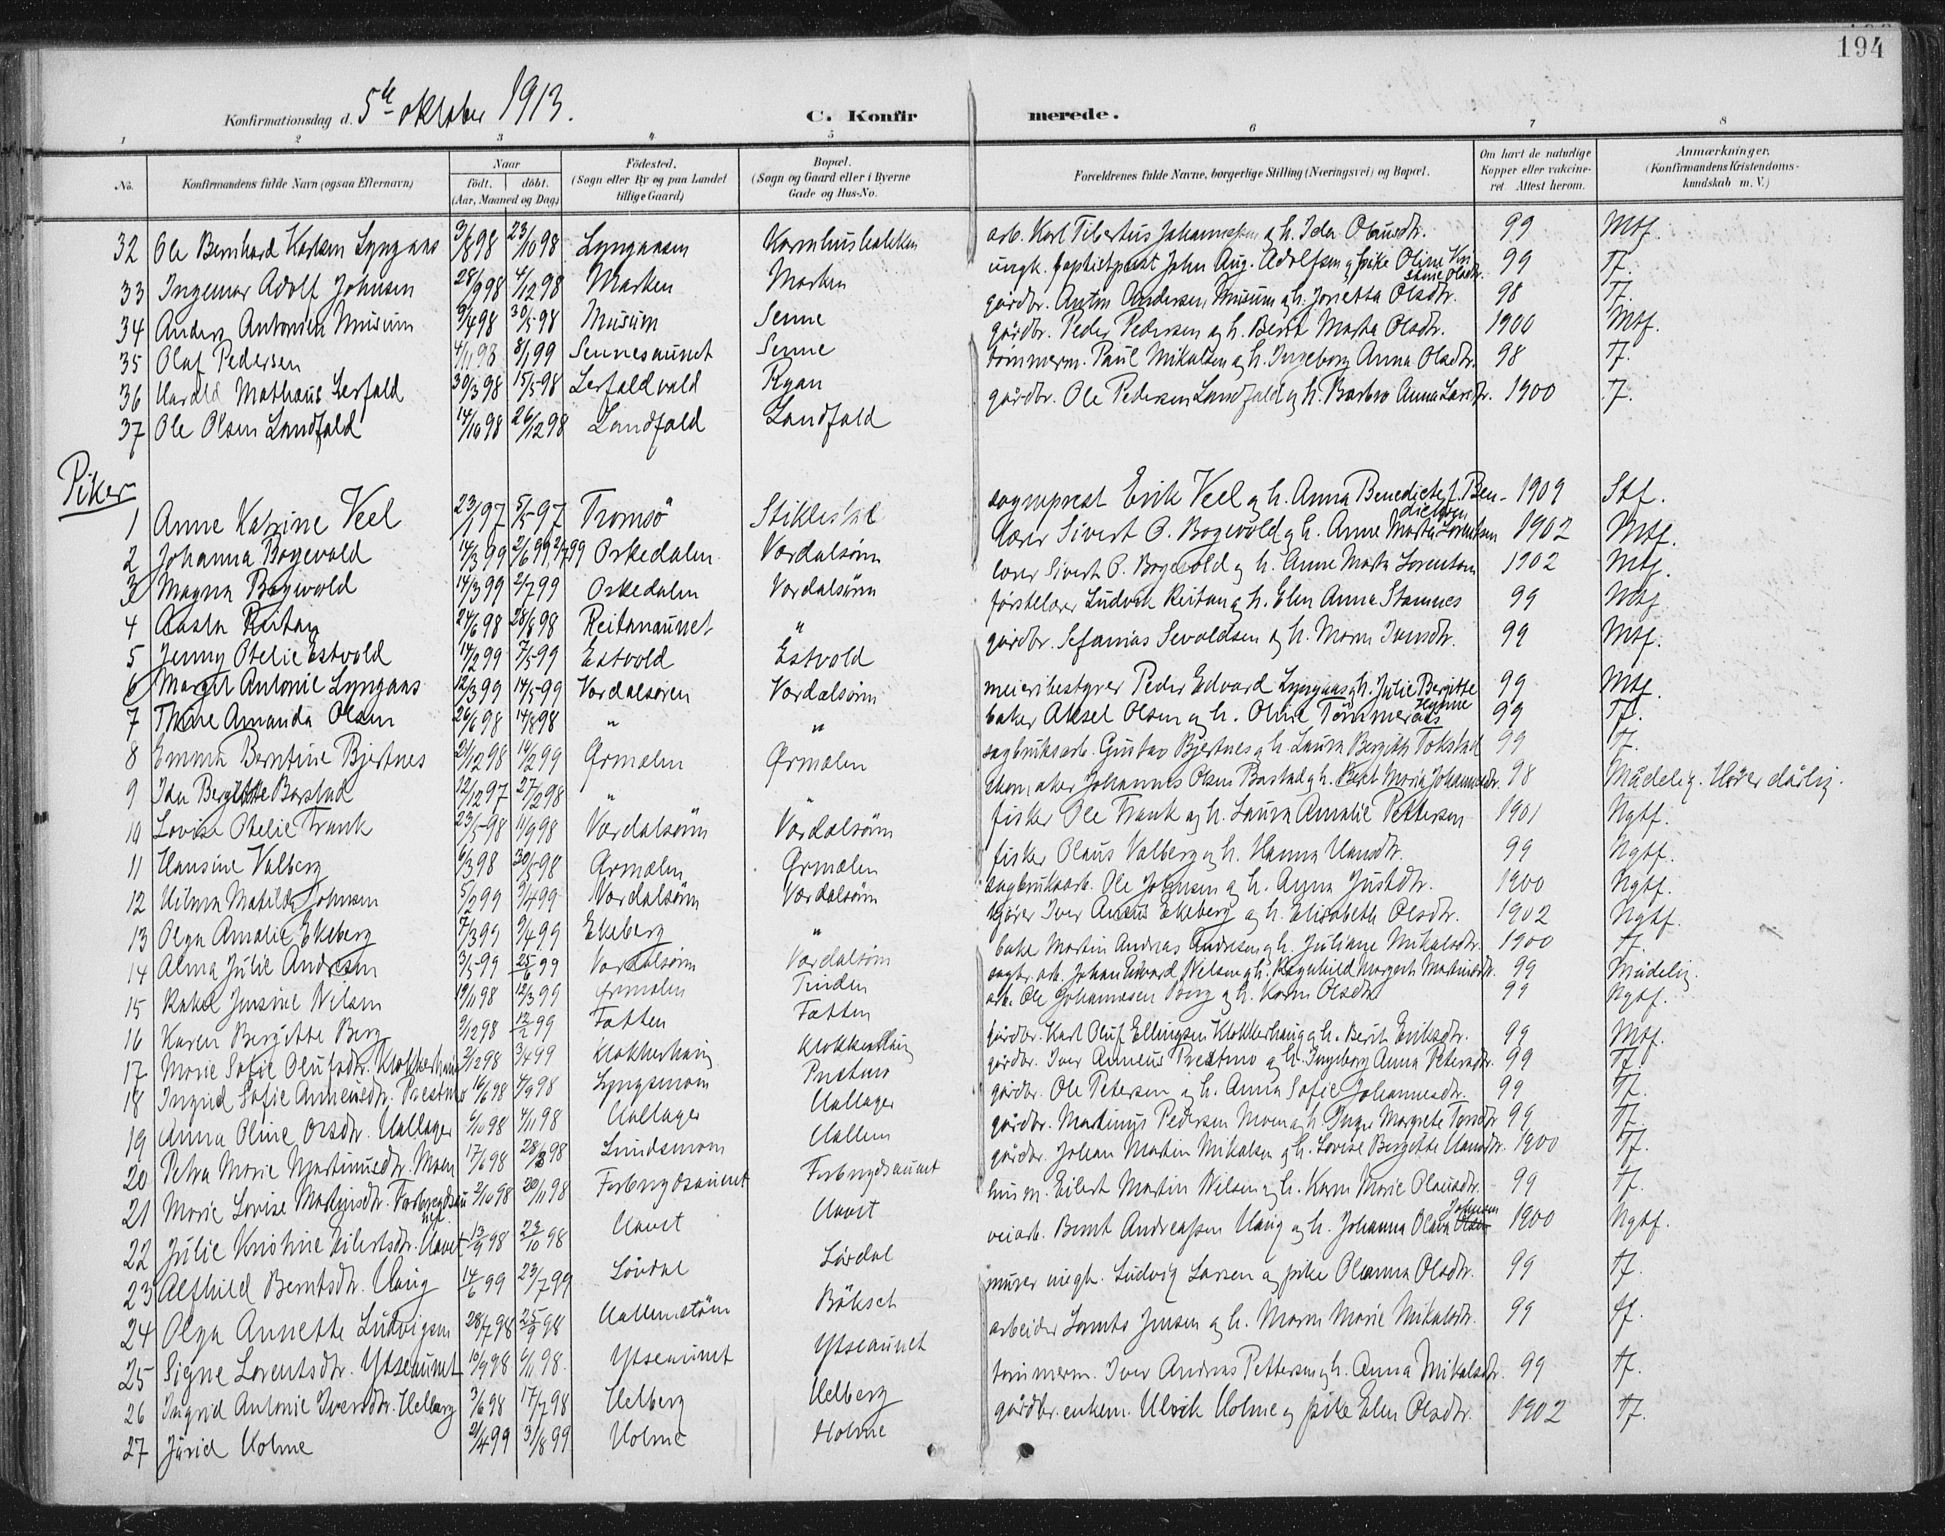 194
Konfirmationsdag d. 5te oktober 1913.
C. Konfirmerede.
1 2 3 4 5 6 7 8
No. Konfirmandens fulde Navn (ogsaa Efternavn) Naar födt. döbt. (Aar, Maaned og Dag) Födested. (Sogn eller By og paa Landet tillige Gaard) Bopæl. (Sogn og Gaard eller i Byerne Gade og Hus-No. Forældrenes fulde Navne, borgerlige Stilling (Næringsvei) og Bopæl. Om havt de naturlige Kopper eller vakcineret. Attest herom. Anmærkninger. (Konfirmandens Kristendomskundskab m. V.)
32 Ole Bernhard Karlsen Lyngaas 3/8 98 23/10 98 Lyngaasen Kornhusbakken arb. Karl Tibertus Johannessen og h. Ida Olausdtr. 99 Mtf.
33 Ingemar Adolf Johnsen 28/9 98 4/12 98 Marken Marken ungk. baptistprest John Aug. Adolfsen og pike Oline Kristine Olsdtr. 99 Tf.
34 Anders Antonsen Musum 9/4 98 30/5 98 Musum Senne gårdbr. Anton Andersen Musum og h. Jonetta Olsdtr. 98 Tf.
35 Olaf Pedersen 4/11 98 8/1 99 Sennesaunet Senne gårdbr. Peder Pedersen og h. Berit Marta Olsdtr. 1900 Mtf.
36 Harald Mathæus Lerfald 30/3 98 15/5 98 Lerfaldvald Ryan tømmerm. Paul Mikalsen og h. Ingeborg Anna Olsdtr. 98 Tf.
37 Ole Olsen Landfald 14/10 98 26/12 98 Landfald Landfald gårdbr. Ole Pedersen Landfald og h. Barbro Anna Larsdtr. 1900 T.
Piker
1 Anne Katrine Veel 23/1 97 5/5 97 Tromsö Stiklestad sogneprest Erik Veel og h. Anna Benedicte f. Bendictsen 1909 Stf.
2 Johanna Bogevold 14/3 99 2/6 99, 2/7 99 Orkedalen Værdalsøren lærer Sivert O. Bogevold og h. Anne Marta Lorentsen 1902 Mtf.
3 Magna Bogevold 14/3 99 2/7 99 Orkedalen Værdalsøren lærer Sivert O. Bogevold og h. Anne Marta Lorentsen 1902 Mtf.
4 Aasta Reitan 24/6 98 28/8 98 Reitanaunet " førstelærer Ludvik Reitan og h. Elen Anna Stamnes 99 Mtf.
5 Jenny Otelie Estvold 14/2 99 7/5 99 Estvold Estvold gårdbr. Sefanias Sevaldsen og h. Maren Iversdtr. 99 Mtf.
6 Margit Antonie Lyngaas 12/3 99 14/5 99 Værdalsøren Værdalsøren meieribestyrer Peder Edvard Lyngaas og h. Julie Bergitte Hynne 99 Mtf.
7 Thine Amanda Olsen 26/6 98 14/8 98 " " baker Aksel Olsen og h. Oline Tømmeraas 99 Tf.
8 Emma Berntine Bjertnes 21/12 98 19/2 99 Ørmælen Ørmælen sagbruksarb. Gustav Bjertnes og h. Laura Bergitte Tokstad 99 Tf.
9 Ida Bergitte Borstad 12/12 97 27/2 98 " " skomaker Johannes Olsen Bastad og h. Beret Maria Johannesdtr. 98 Mådelig. Hører dårlig.
10 Lovise Otelie Frank 23/5 98 11/9 98 Værdalsøren Værdalsøren fisker Ole Frank og h. Laura Amalie Pettersen 1901 Ngtf.
11 Hansine Valberg 6/3 98 30/5 98 Ørmælen Ørmælen fisker Olaus Valberg og h. Hanna Hansdtr. 99 Ngtf.
12 Hilma Matilda Johnsen 5/2 99 9/4 99 Værdalsøren Værdalsøren sagbruksarb. Ole Johnsen og h. Anna Justdtr. 1900 Ngtf.
13 Olga Amalie Ekeberg 7/3 99 9/4 99 Ekeberg " kjører Iver Anæus Ekeberg og h. Elisabeth Olsdtr. 1902 Ngtf.
14 Alma Julie Andresen 3/5 99 25/6 99 Værdalsøren Værdalsøren baker Martin Andreas Andresen og h. Juliane Mikalsdtr. 1900 Tf.
15 Rakel Jensine Nilsen 19/11 98 12/3 99 Ørmælen Tinden sagbr. arb. Johan Edvard Nilsen og h. Ragnhild Margrete Martinsdtr. 99 Mådelig.
16 Karen Bergitte Berg 9/12 98 12/2 99 Fætten Fætten arb. Ole Johannesen Berg og h. Karen Olsdtr. 99 Ngtf.
17 Marie Sofie Olufsdtr. Klokkerhaug 2/12 98 3/4 99 Klokkerhaug Klokkerhaug gårdbr. Karl Oluf Ellingsen Klokkerhaug og h. Berit Eriksdtr. 99 Mtf.
18 Ingrid Sofie Anneusdtr. Prestmo 16/6 98 4/9 98 Lyngsmoen Prestmo gårdbr. Iver Anneus Prestmo og h. Ingeborg Anna Petersdtr. 99 Tf.
19 Anna Oline Olsdtr. Hallager 6/10 98 4/11 98 Hallager Hallager gårdbr. Ole Petersen og h. Anna Sofie Johannesdtr. 99 Tf.
20 Petra Marie Martinusdtr. Moen 17/6 98 28/8 98 Lundsmoen Hallem gårdbr. Martinus Pedersen Moen og h. Inger Margrete Torsdtr. 99 Tf.
21 Marie Lovise Martinsdtr. Forbregdsaunet 2/10 98 20/11 98 Forbregdsaunet Forbregdsaunet gårdbr. Johan Martin Mikalsen og h. Lovise Bergitte Hansdtr. 1900 Tf.
22 Julie Kristine Eilertsdtr. Haavet 13/9 98 23/10 98 Haavet Haavet husm. Eilert Martin Nilsen og h. Karen Marie Olausdtr. 99 Tf.
23 Alfhild Berntsdtr. Haug 14/6 99 23/7 99 Lövdal Lövdal veiarb. Bernt Andreassen Haug og h. Johanna Olava Johnsen 1900 Ngtf.
24 Olga Annette Ludvigsen 28/7 98 25/9 98 Hallemstøen Böhset murer ungk. Ludvig Larsen og pike Olianna Olsdtr. 99 Tf.
25 Signe Lorentsdtr. Ytseaunet 19/9 98 6/11 98 Ytseaunet Ytseaunet arbeider Lornts Jensen og h. Maren Marie Mikalsdtr. 99 Tf.
26 Ingrid Antonie Iversdtr. Helberg 3/6 98 17/7 98 Helberg Helberg tømmerm. Iver Andreas Pettersen og h. Anna Mikalsdtr. 99 Tf.
27 Jörid Holme 21/4 99 31/8 99 Holme Holme gårdbr. enkem. Ulrik Holme og pike Elen Olsdtr. 1902 Tf.